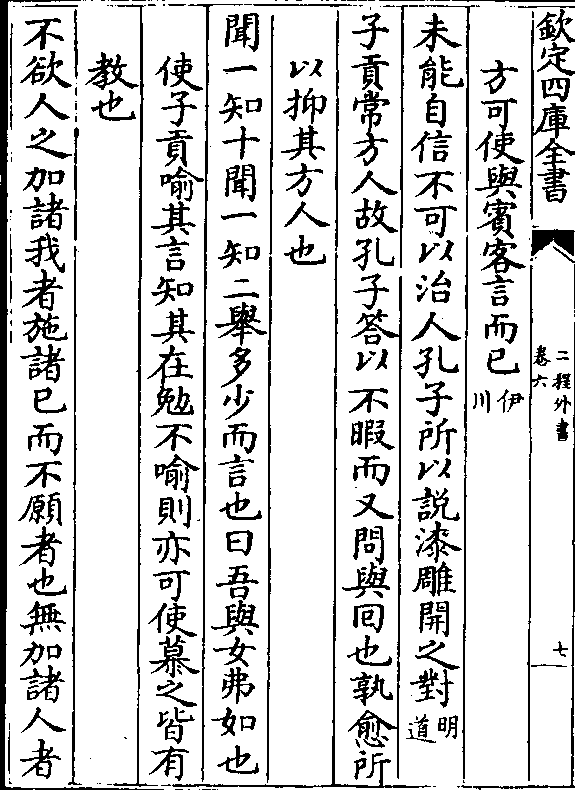 欽定四庫全書
二程外書
卷六
七
方可使與賓客言而已伊川
未能自信不可以治人孔子所以說漆雕開之對明道
子貢常方人故孔子答以不暇而又問與回也孰愈所
以抑其方人也
聞一知十聞一知二舉多少而言也曰吾與女弗如也
使子貢喻其言知其在勉不喻則亦可使慕之皆有
教也
不欲人之加諸我者施諸已而不願者也無加諸人者